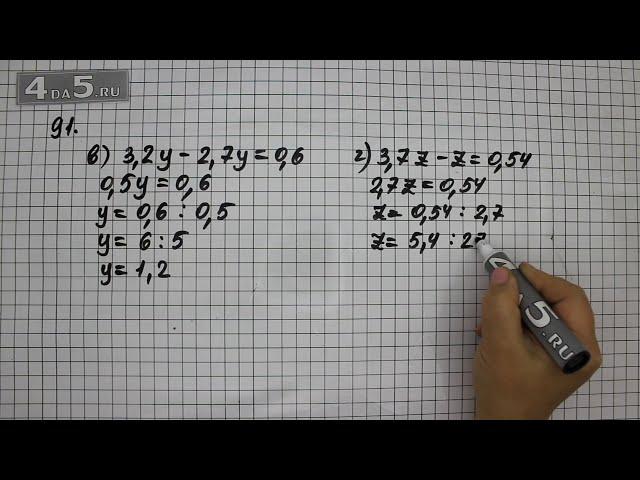 4DA5.RU
91.
в) 3,2y - 2,7y = 0,6
0,5y = 0,6
y = 0,6 : 0,5
y = 6 : 5
y = 1,2
г) 3,7z - z = 0,54
2,7z = 0,54
z = 0,54 : 2,7
z = 5,4 : 27
4DA5.RU